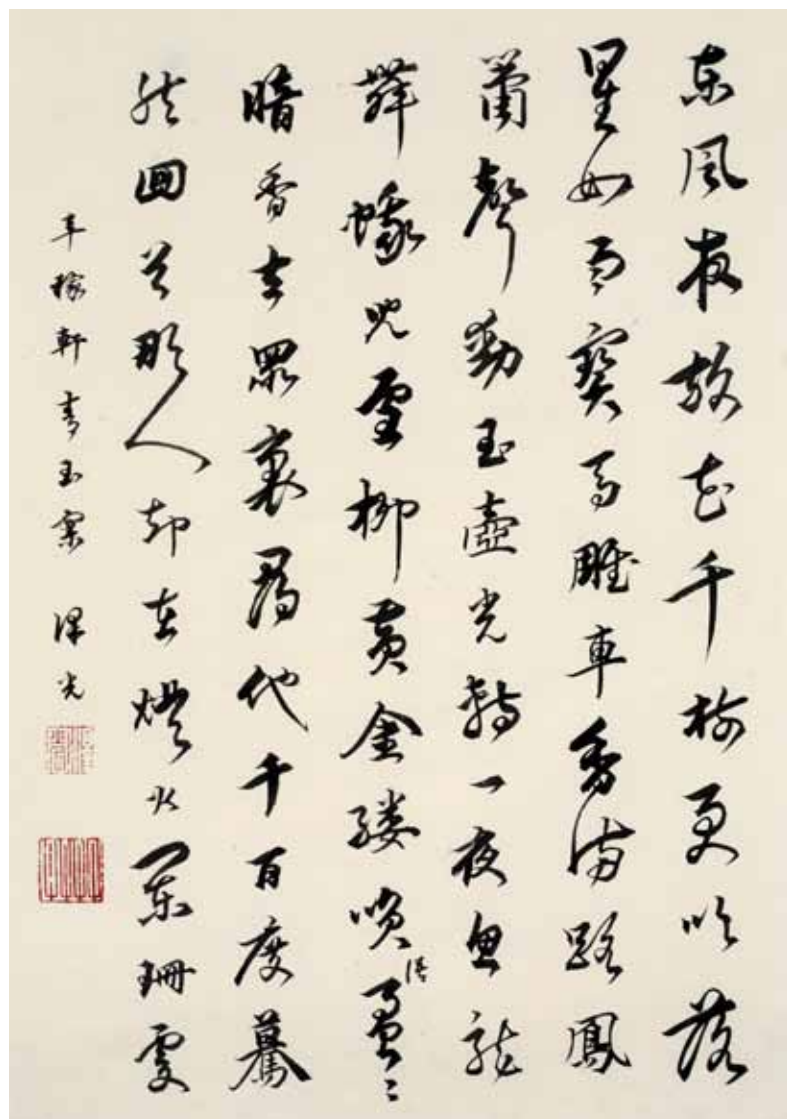 東風夜放花千樹更吹落
星如雨寶馬雕車香滿路鳳
簫聲動玉壺光轉一夜魚龍
舞蛾兒雪柳黃金縷咲語盈〻
暗香去眾裏尋他千百度驀
然回首那人却在燈火闌珊處
辛稼軒青玉案 光